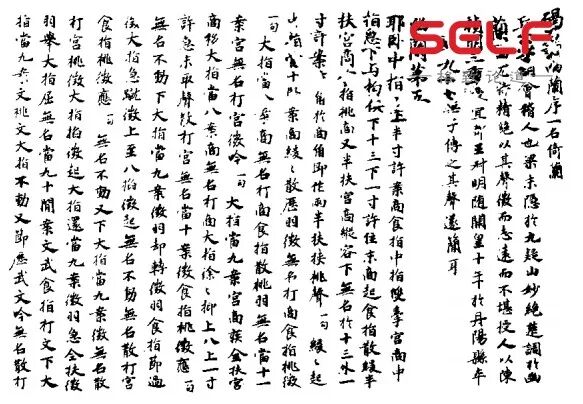 SELF
碣石調幽蘭序一名倚蘭
丘公字明會稽人也梁末隱於九疑山妙絕楚調於幽
蘭一曲尤特精絕以其聲微而志遠而不堪授人以陳
禎明三年授宜都王叔明隨開皇十年於丹陽縣卒
九十七無子傳之其聲遂簡耳
幽蘭第五
耶臥中指十上半寸許案商食指中指雙牽宮商中
指急下与拘俱下十三下一寸許住末商起食指散緩半
扶宮商食指挑商又半扶宮商縱容下無名於十三外一
寸許案商角於商角即作兩半扶挾挑聲一句緩緩起
中指當十案商緩緩散歷羽徵無名打商食指挑徵
一句大指當八案商無名打商食指散挑羽無名當十一
案宮無名打宮徵吟一句大指當九案宮商疾全扶宮
商移大指當八案商無名打商大指徐徐抑上八上一寸
許急末取聲散打宮無名當十案徵食指挑徵應一句
無名不動下大指當九案徵羽却轉徵羽食指節過
徵大指急蹴徵上至八拍徵起無名不動無名散打宮
食指挑徵應一句無名不動又下大指當九案徵無名散
打宮挑徵大指拍徵起大指還當九案徵羽急全扶徵
羽舉大指屈無名當九十間案文武食指打文下大
指當九案文挑文大指不動又節應武文吟無名散打